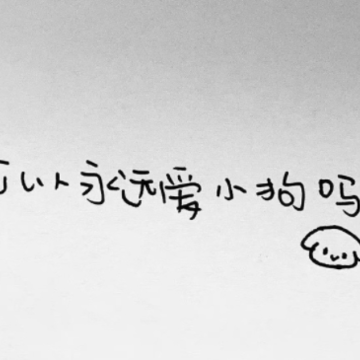 可以永远爱小狗吗